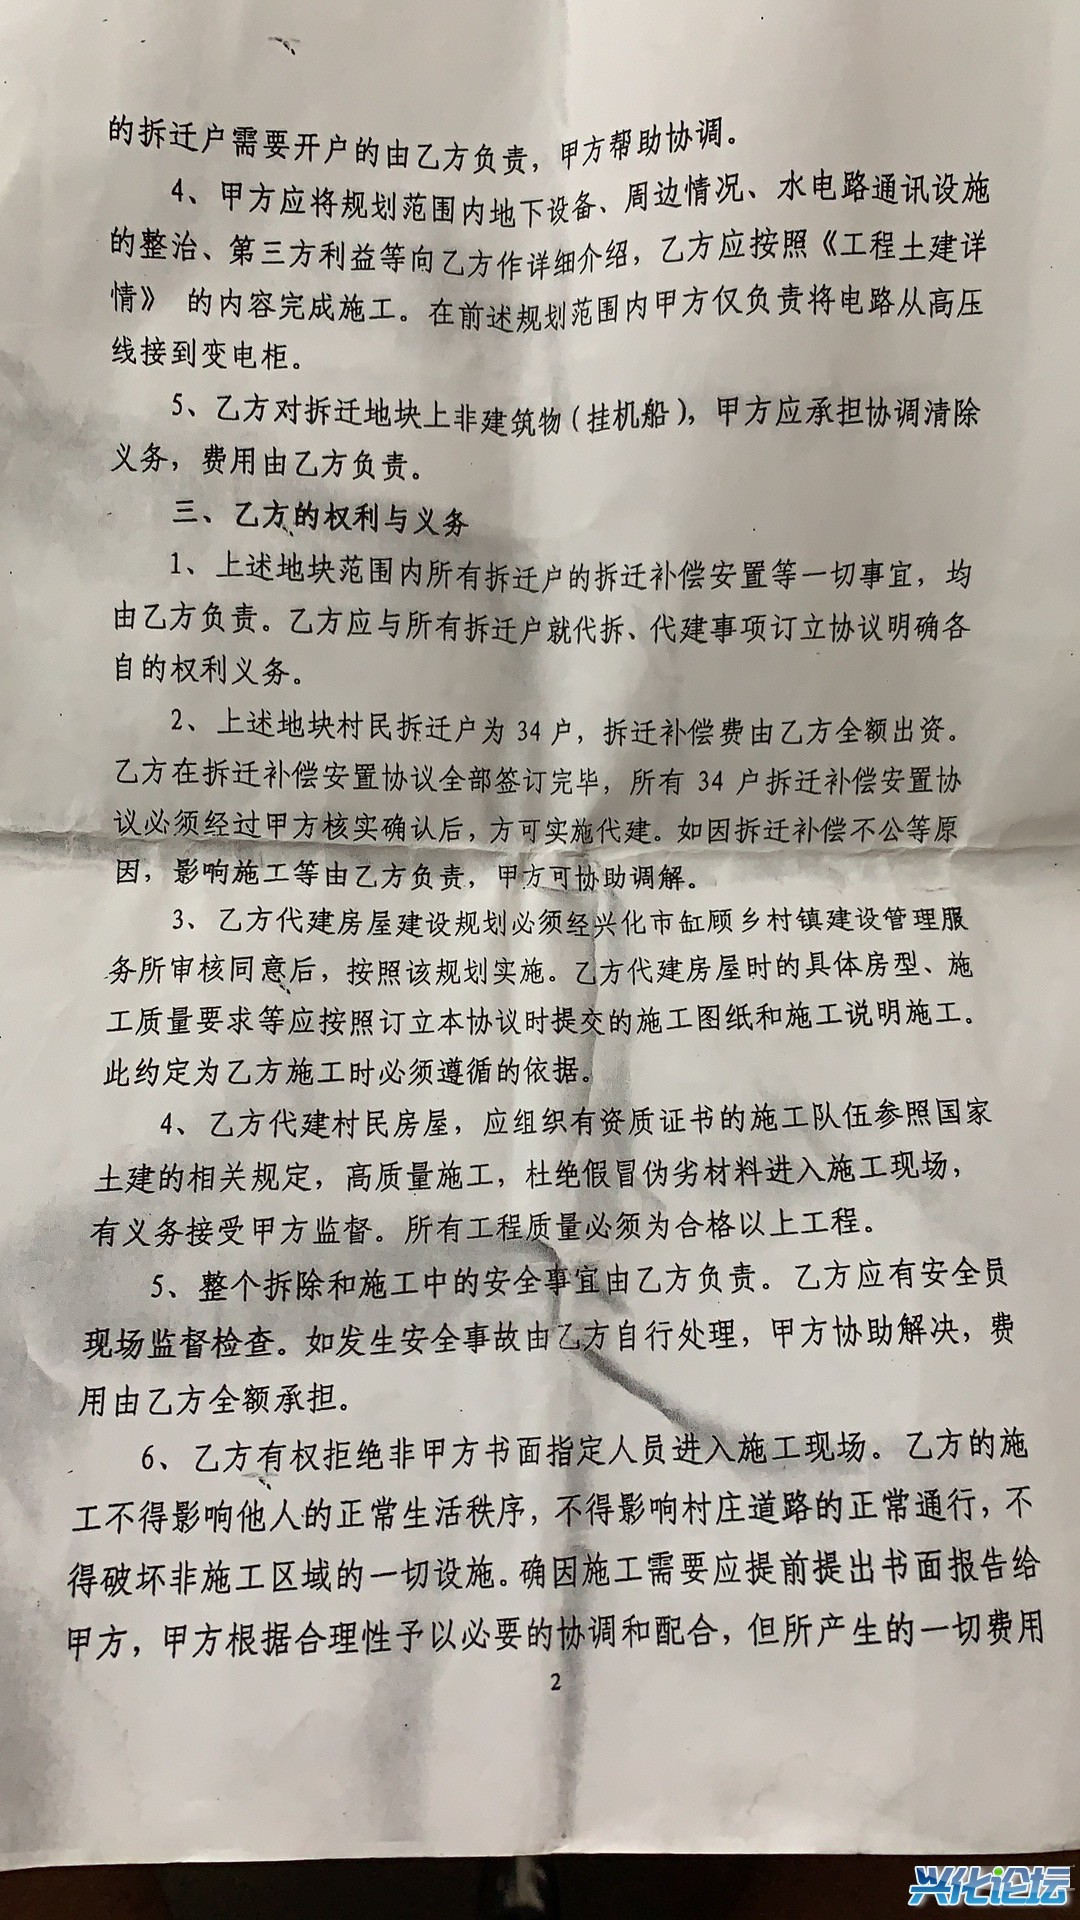 的拆迁户需要开户的由乙方负责，甲方帮助协调。
4、甲方应将规划范围内地下设备、周边情况、水电路通讯设施
的整治、第三方利益等向乙方作详细介绍，乙方应按照《工程土建详
情》 的内容完成施工。在前述规划范围内甲方仅负责将电路从高压
线接到变电柜。
5、乙方对拆迁地块上非建筑物（挂机船），甲方应承担协调清除
义务，费用由乙方负责。
三、乙方的权利与义务
1、上述地块范围内所有拆迁户的拆迁补偿安置等一切事宜，均
由乙方负责。乙方应与所有拆迁户就代拆、代建事项订立协议明确各
自的权利义务。
2、上述地块村民拆迁户为 34 户，拆迁补偿费由乙方全额出资。
乙方在拆迁补偿安置协议全部签订完毕，所有 34 户拆迁补偿安置协
议必须经过甲方核实确认后，方可实施代建。如因拆迁补偿不公等原
因，影响施工等由乙方负责，甲方可协助调解。
3、乙方代建房屋建设规划必须经兴化市缸顾乡村镇建设管理服
务所审核同意后，按照该规划实施。乙方代建房屋时的具体房型、施
工质量要求等应按照订立本协议时提交的施工图纸和施工说明施工。
此约定为乙方施工时必须遵循的依据。
4、乙方代建村民房屋，应组织有资质证书的施工队伍参照国家
土建的相关规定，高质量施工，杜绝假冒伪劣材料进入施工现场，
有义务接受甲方监督。所有工程质量必须为合格以上工程。
5、整个拆除和施工中的安全事宜由乙方负责。乙方应有安全员
现场监督检查。如发生安全事故由乙方自行处理，甲方协助解决，费
用由乙方全额承担。
6、乙方有权拒绝非甲方书面指定人员进入施工现场。乙方的施
工不得影响他人的正常生活秩序，不得影响村庄道路的正常通行，不
得破坏非施工区域的一切设施。确因施工需要应提前提出书面报告给
甲方，甲方根据合理性予以必要的协调和配合，但所产生的一切费用
2
兴化论坛